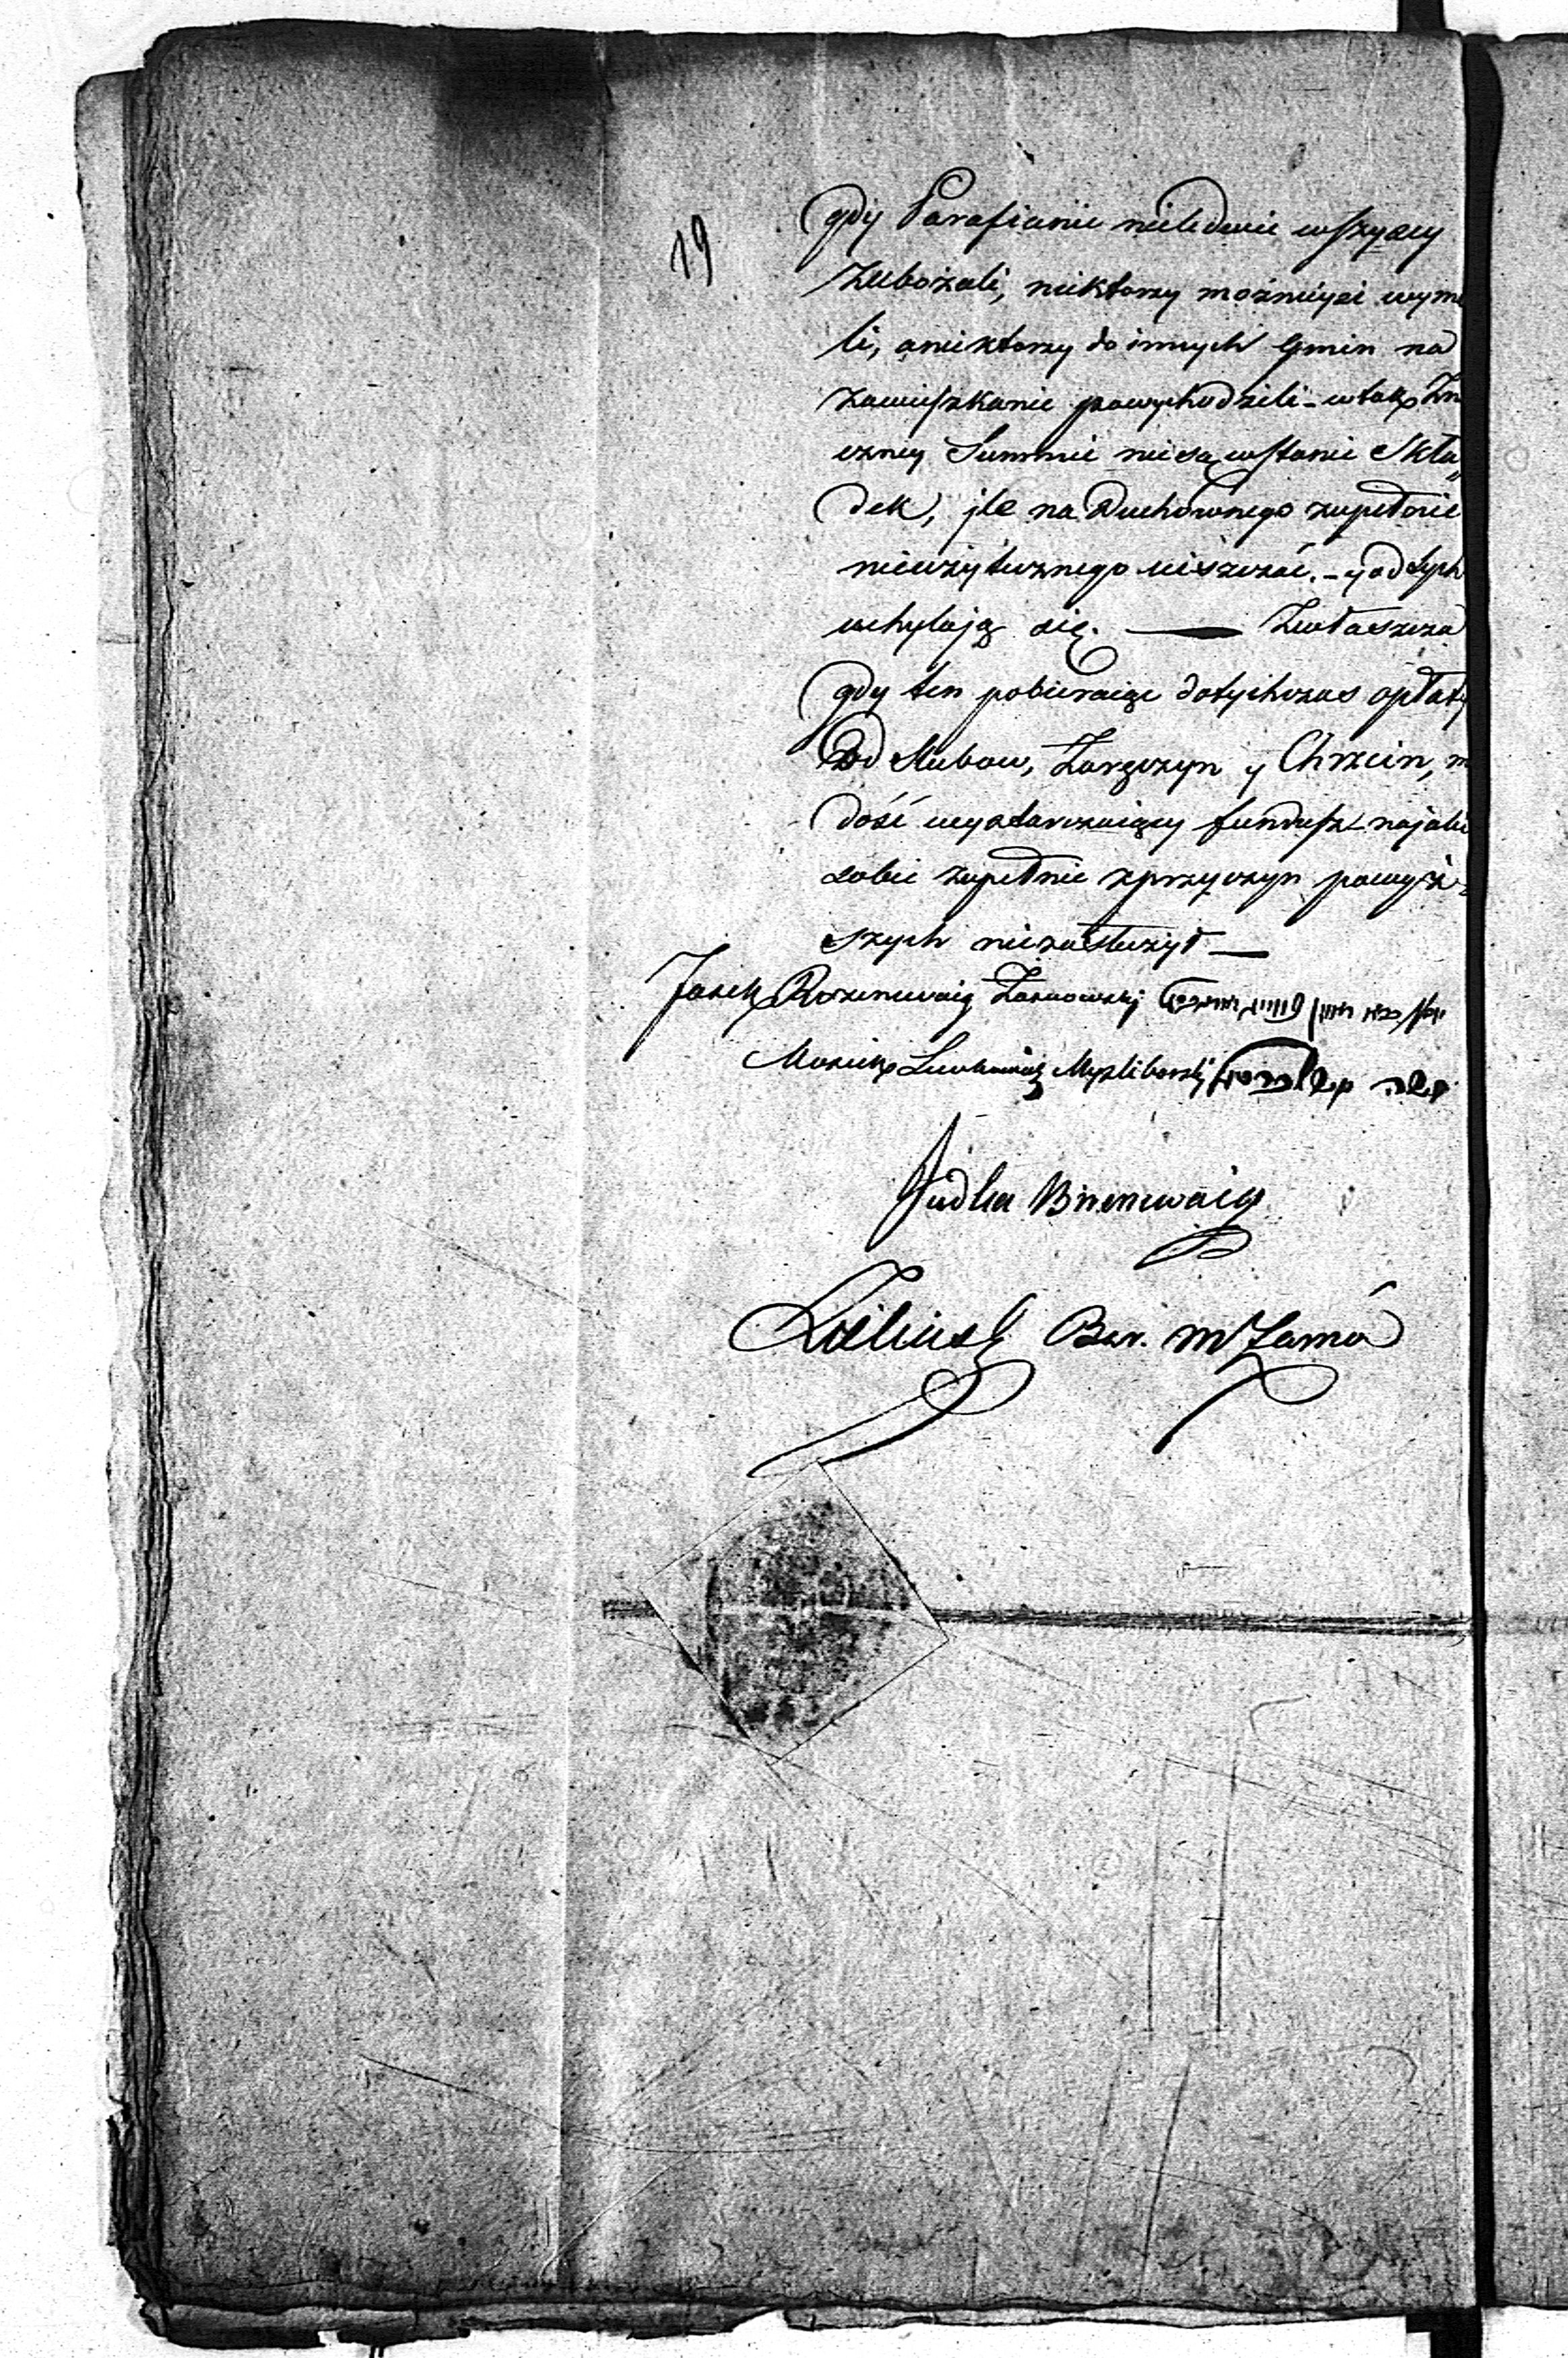 19
gdy Parafianie nieledwie wszyscy
Zubożali, niektorzy możnieysi wym
li, a niektorzy do innych Gmin na
zamieszkanie powychodzili - w tak Zn
czney Summie nie są wstanie Skła„
dek, jle na Duchownego zupełnie
nieużytecznego uiszczać. - y od tych
uchylają się. — Zwłaszcza
gdy ten pobieraiąc dotychczas opłaty
Od Slubow, Zaręczyn y Chrzcin, m
dość wystarczaiący fundusz - na jaki
sobie zupełnie z przyczyn powyż-
szych niezasłużył —
Josek Rozenwaig Zarnowski
Mosiek Mysliborski
Judka Birenwaig
Bur. m Żarno